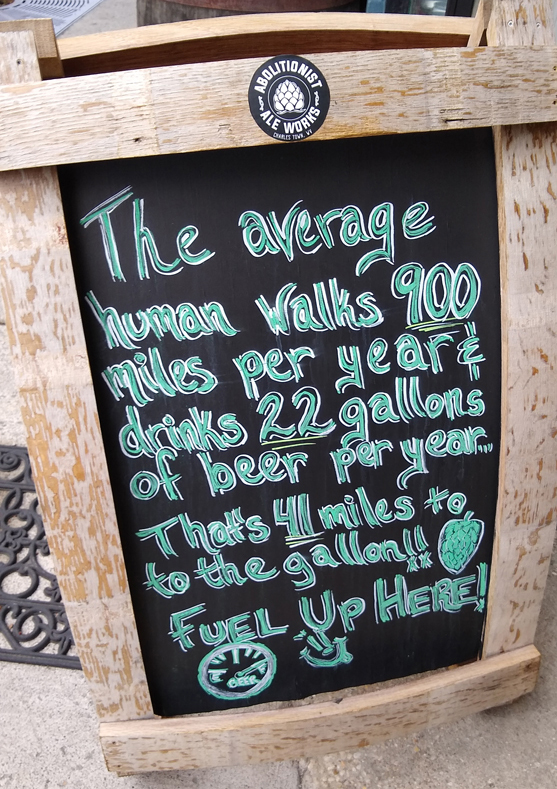 ABOLITIONIST
ALE WORKS
CHARLES TOWN, WV
The average
human walks 900
miles per year &
drinks 22 gallons
of beer per year...
That's 41 miles to
to the gallon!!
FUEL UP HERE!
BEER